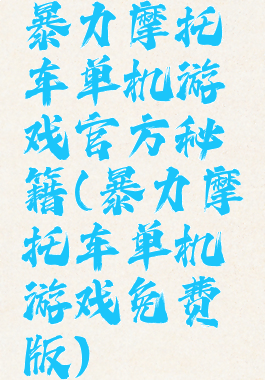 暴力摩托
车单机游
戏官方秘
籍(暴力摩
托车单机
游戏免费
版)